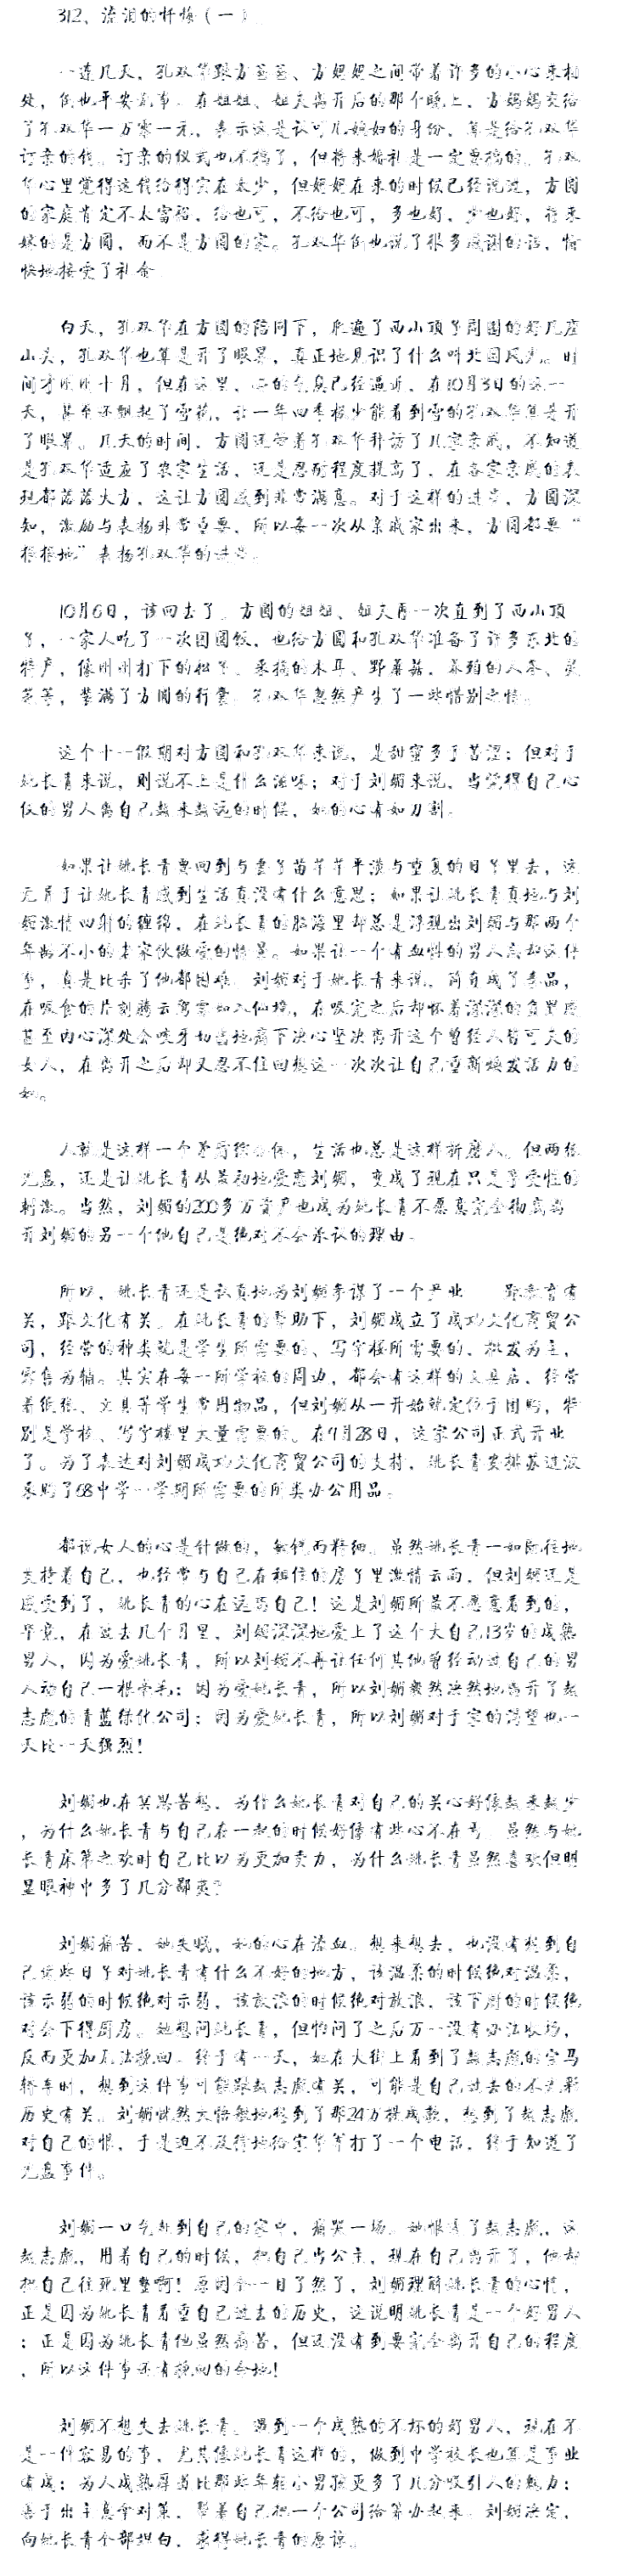 312、流泪的忏悔（一）
一连几天，孔双华跟方爸爸、方妈妈之间带着许多的小心来相
处，倒也平安无事。在姐姐、姐夫离开后的那个晚上，方妈妈交给
了孔双华一万零一元，表示这是认可儿媳妇的身份，算是给孔双华
订亲的钱。订亲的仪式也不搞了，但将来婚礼是一定要搞的。孔双
华心里觉得这钱给得实在太少，但妈妈在来的时候已经说过，方圆
的家庭肯定不太富裕，给也可，不给也可，多也好，少也好，将来
嫁的是方圆，而不是方圆的家。孔双华倒也说了很多感谢的话，愉
快地接受了礼金。
白天，孔双华在方圆的陪同下，玩遍了西小顶子周围的好几座
山头，孔双华也算是开了眼界，真正地见识了什么叫北国风光。时
间才刚刚十月，但在这里，冬的气息已经逼近，在10月3日的这一
天，甚至还飘起了雪花，让一年四季极少能看到雪的孔双华算是开
了眼界。几天的时间，方圆还带着孔双华拜访了几家亲戚，不知道
是孔双华适应了农家生活，还是忍耐程度提高了，在各家亲戚的表
现都落落大方，这让方圆感到非常满意。对于这样的进步，方圆深
知，激励与表扬非常重要，所以每一次从亲戚家出来，方圆都要“
狠狠地”表扬孔双华的进步。
10月6日，该回去了。方圆的姐姐、姐夫再一次直到了西小顶
子，一家人吃了一次团圆饭，也给方圆和孔双华准备了许多东北的
特产，像刚刚打下的松子、采摘的木耳、野蘑菇、养殖的人参、灵
芝等，装满了方圆的行囊。孔双华忽然产生了一些惜别之情。
这个十一假期对方圆和孔双华来说，是甜蜜多于苦涩；但对于
姚长青来说，则说不上是什么滋味；对于刘娟来说，当觉得自己心
仪的男人离自己越来越远的时候，她的心有如刀割。
如果让姚长青要回到与妻子苗芊芊平淡与重复的日子里去，这
无异于让姚长青感到生活真没有什么意思；如果让姚长青真地与刘
娟激情四射的缠绵，在姚长青的脑海里却总是浮现出刘娟与那两个
年龄不小的老家伙做爱的情景。如果让一个有血性的男人忘却这件
事，真是比杀了他都困难。刘娟对于姚长青来说，简直成了毒品，
在吸食的片刻腾云驾雾如入仙境，在吸完之后却怀着深深的负罪感
甚至内心深处会咬牙切齿地痛下决心坚决离开这个曾经人皆可夫的
女人，在离开之后却又忍不住回想这一次次让自己重新焕发活力的
她。
人就是这样一个矛盾综合体，生活也总是这样折磨人。但两张
光盘，还是让姚长青从最初地爱恋刘娟，变成了现在只是享受性的
刺激。当然，刘娟的200多万资产也成为姚长青不愿意完全彻底离
开刘娟的另一个他自己是绝对不会承认的理由。
所以，姚长青还是认真地为刘娟参谋了一个产业——跟教育有
关，跟文化有关。在姚长青的帮助下，刘娟成立了成功文化商贸公
司，经营的种类就是学生所需要的、写字楼所需要的，批发为主，
零售为辅。其实在每一所学校的周边，都会有这样的文具店，经营
着纸张、文具等学生常用物品，但刘娟从一开始就定位于团购，特
别是学校、写字楼里大量需要的。在9月28日，这家公司正式开业
了。为了表达对刘娟成功文化商贸公司的支持，姚长青安排苏过波
采购了68中学一学期所需要的所类办公用品。
都说女人的心是针做的，敏锐而精细。虽然姚长青一如既往地
支持着自己，也经常与自己在租住的房子里激情云雨，但刘娟还是
感受到了，姚长青的心在远离自己！这是刘娟所最不愿意看到的，
毕竟，在过去几个月里，刘娟深深地爱上了这个大自己13岁的成熟
男人，因为爱姚长青，所以刘娟不再让任何其他曾经动过自己的男
人动自己一根毫毛；因为爱姚长青，所以刘娟毅然决然地离开了赵
志彪的青蓝绿化公司；因为爱姚长青，所以刘娟对于家的渴望也一
天比一天强烈！
刘娟也在冥思苦想，为什么姚长青对自己的关心好像越来越少
，为什么姚长青与自己在一起的时候好像有些心不在焉，虽然与姚
长青床第之欢时自己比以为更加卖力，为什么姚长青虽然喜欢但明
显眼神中多了几分鄙夷？
刘娟痛苦，她失眠，她的心在流血。想来想去，也没有想到自
己这些日子对姚长青有什么不好的地方，该温柔的时候绝对温柔，
该示弱的时候绝对示弱，该放浪的时候绝对放浪，该下厨的时候绝
对会下得厨房。她想问姚长青，但怕问了之后万一没有办法收场，
反而更加无法挽回。终于有一天，她在大街上看到了赵志彪的宝马
轿车时，想到这件事可能跟赵志彪有关，可能是自己过去的不光彩
历史有关。刘娟恍然大悟般地想到了那24万提成款，想到了赵志彪
对自己的恨，于是迫不及待地给宋华军打了一个电话，终于知道了
光盘事件。
刘娟一口气赶到自己的家中，痛哭一场。她恨透了赵志彪，这
赵志彪，用着自己的时候，把自己当公主，现在自己离开了，他却
把自己往死里整啊！原因全一目了然了，刘娟理解姚长青的心情，
正是因为姚长青看重自己过去的历史，这说明姚长青是一个好男人
；正是因为姚长青他虽然痛苦，但还没有到要完全离开自己的程度
，所以这件事还有挽回的余地！
刘娟不想失去姚长青。遇到一个成熟的不坏的好男人，现在不
是一件容易的事，尤其像姚长青这样的，做到中学校长也算是事业
有成；为人成熟厚道比那些年轻小男孩更多了几分吸引人的魅力；
善于出主意拿对策，帮着自己把一个公司给筹办起来。刘娟决定，
向姚长青全部坦白，求得姚长青的原谅。